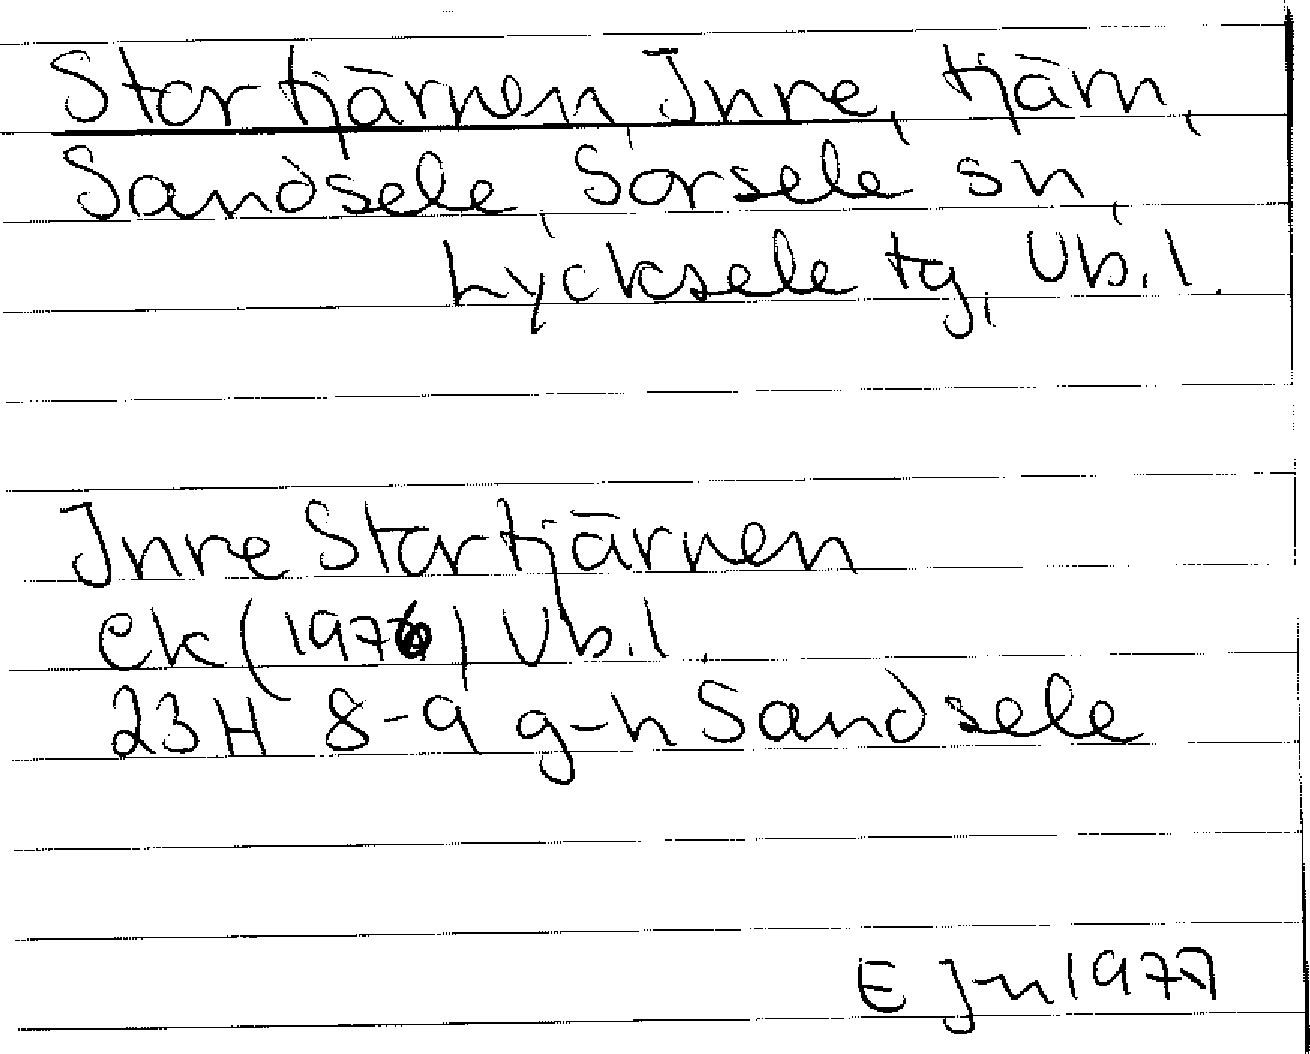 Stortjärnen Inre, tjärn,
Sandsele, Sorsele sn,
Lycksele tg, Vb.l.
Inre Stortjärnen
ek (1976) Vb.l.
23H 8-9 g-h Sandsele
E 1977